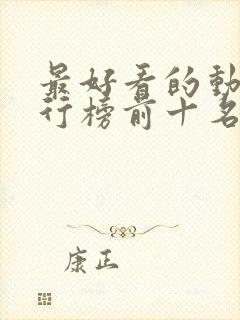 最好看的動
行榜前十名
康正